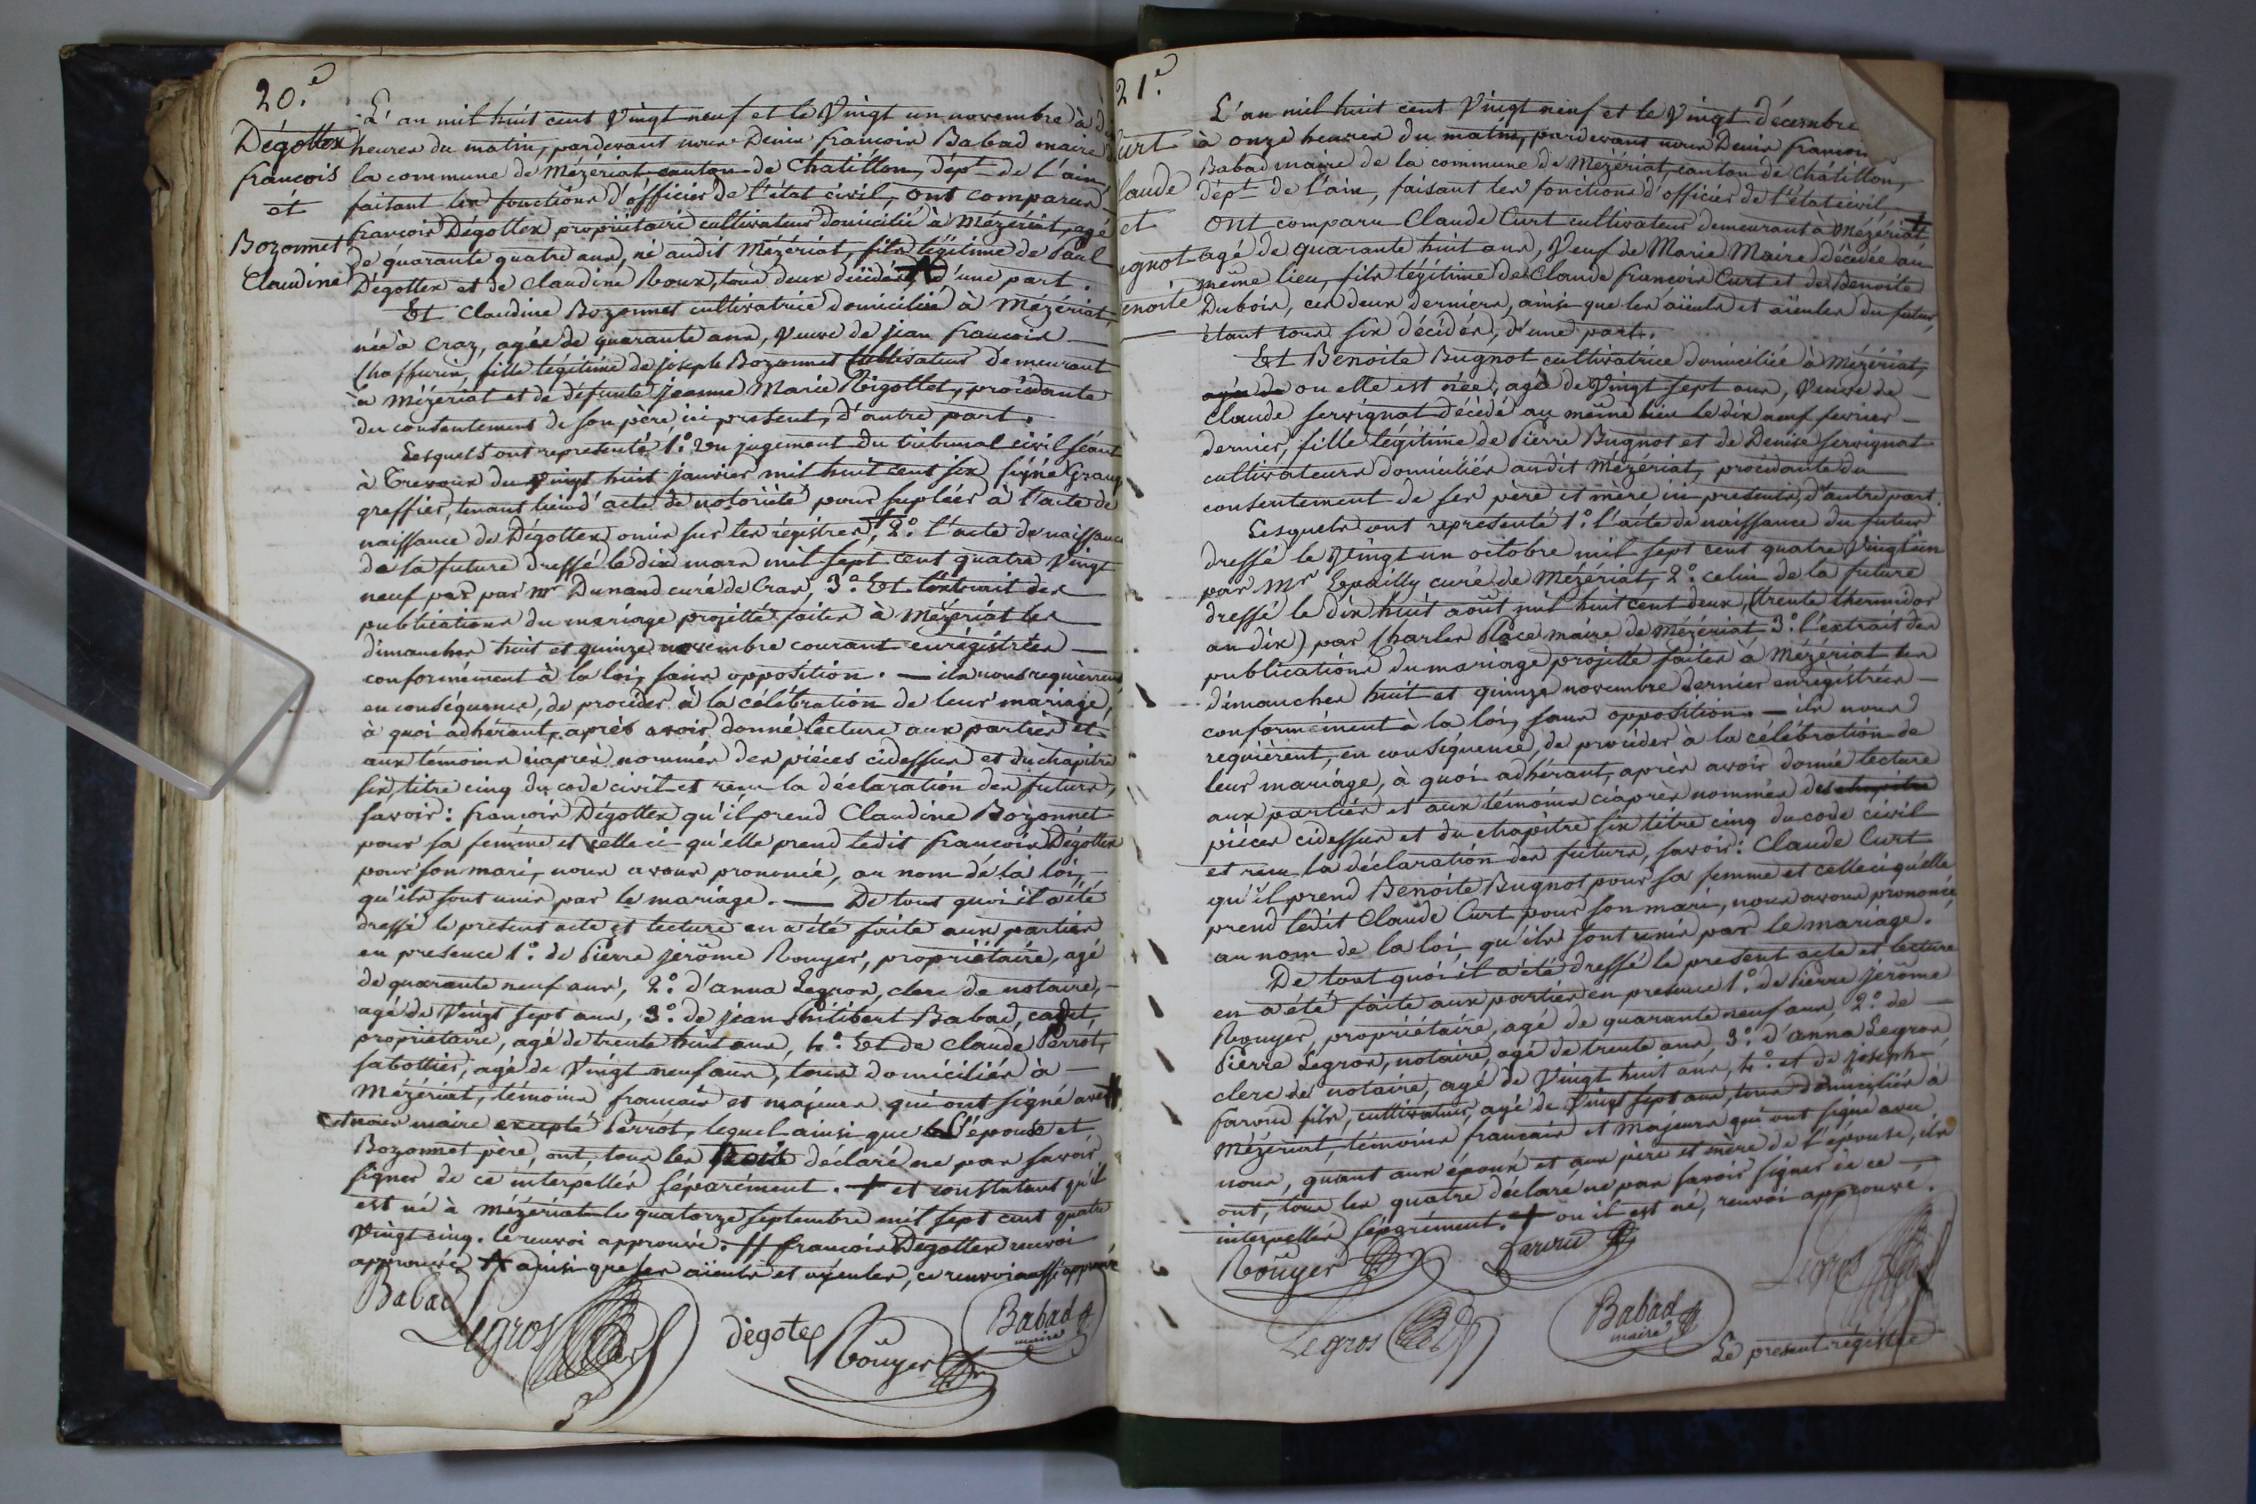 20.e
Dégottex
françois
et
Bozonnet
Claudine
L'an mil huit cent vingt neuf et le vingt un novembre à
heures du matin, pardevant nous Denis françois Babad maire
la commune de Mézériat canton de Chatillon, dépt de l'ain,
faisant les fonctions d'officier de l'état civil, ont comparu
françois Dégottex propriétaire cultivateur domicilié à Mézériat, agé
de quarante quatre ans, né audit Mézériat, fils légitime de Paul
Dégottex et de Claudine Roux, tous deux décédés, d'une part.
Et Claudine Bozonnet cultivatrice domiciliée à Mézériat,
née à Craz, agée de quarante ans, veuve de jean françois
Chaffurin, fille légitime de joseph Bozonnet Cultivateur demeurant
à Mézériat et de défunte jeanne Marie Rigottet, procédante
du consentement de son père, ici present, d'autre part.
Lesquels ont representé 1.º un jugement du tribunal civil séant
à Trevoux du vingt huit janvier mil huit cent six signé
greffier, tenant lieu d'acte de notoriété pour supléer à l'acte de
naissance de Dégottex omis sur les régistres, 2.º l'acte de naissance
de la future dressé le dix mars mil sept cent quatre vingt
neuf par par mr Dunand curé de Cras, 3.º Et l'extrait des
publications du mariage projetté faites à Mézériat les
dimanches huit et quinze novembre courant enrégistrées
conformément à la loi, sans opposition. — ils nous requièrent
en conséquence, de procéder à la célébration de leur mariage,
à quoi adhérant, après avoir donné lecture aux parties et
aux témoins ciaprès nommés des pièces cidessus et du chapitre
six, titre cinq du code civil et reçu la déclaration des futurs,
savoir: françois Dégottex qu'il prend Claudine Bozonnet
pour sa femme et celle ci qu'elle prend ledit françois Dégottex
pour son mari, nous avons prononcé, au nom de la loi,
qu'ils sont unis par le mariage. — De tout quoi il a été
dressé le present acte et lecture en a été faite aux parties
en presence 1.º de Pierre jerôme Rouyer, propriétaire, agé
de quarante neuf ans, 2.º d'anna Legros, clerc de notaire,
agé de vingt sept ans, 3.º de jean Philibert Babad, cadet,
propriétaire, agé de trente huit ans, 4.º Et de Claude Perrot,
sabottier, agé de vingt neuf ans, tous domiciliés à
Mézériat, témoins français et majeurs qui ont signé avec
et nous maire excepté Perrot, lequel ainsi que l'épouse et
Bozonnet père, ont, tous les trois déclaré ne pas savoir
signer de ce interpellés séparément. + et constatant qu'il
est né à mézériat le quatorze septembre mil sept cent quatre
vingt cinq. le renvoi approuvé. # françois Dégottex renvoi
approuvé ainsi que ses aïeuls et ayeules, ce renvoi aussi approuvé
Babad
Legros
dègotex
Roüyer
Babad
maire
21.e
Curt
Claude
et
Bugnot
Benoite
L'an mil huit cent vingt neuf et le vingt décembre
à onze heures du matin, pardevant nous Denis françois
Babad maire de la commune de Mézériat, canton de Châtillon,
dépt de l'ain, faisant les fonctions d'officier de l'état civil
ont comparu Claude Curt cultivateur demeurant à Mézériat +
agé de quarante huit ans, veuf de Marie Maire décédée au
même lieu, fils légitime de Claude françois Curt et de Benoite
Dubois, ces deux derniers, ainsi que les aïeuls et aïeules du futur,
étant tous six décédés, d'une part.
Et Benoite Bugnot cultivatrice domiciliée à Mézériat,
agée de ou elle est née, agé de vingt sept ans, veuve de
Claude servignat décédé au même lieu le dix neuf fevrier
dernier, fille légitime de Pierre Bugnot et de Denise servignat
cultivateurs domiciliés audit Mézériat, procédante du
consentement de ses père et mère ici presents, d'autre part.
Lesquels ont representé 1.º l'acte de naissance du futur
dressé le vingt un octobre mil sept cent quatre vingt un
par Mr curé de Mézériat, 2.º celui de la future
dressé le dix huit août mil huit cent deux, (trente thermidor
an dix) par Charles Place maire de Mézériat 3.º l'extrait des
publications du mariage projetté faites à Mézériat les
dimanches huit et quinze novembre dernier enrégistrées
conformément à la loi, sans opposition — ils nous
requièrent, en conséquence, de procéder à la célébration de
leur mariage, à quoi adhérant, après avoir donné lecture
aux parties et aux témoins ciaprès nommés des chapitre
pièces cidessus et du chapitre six titre cinq du code civil
et reçu la déclaration des futurs, savoir: Claude Curt
qu'il prend Benoite Bugnot pour sa femme et celle ci qu'elle
prend ledit Claude Curt pour son mari, nous avons prononcé
au nom de la loi, qu'ils sont unis par le mariage.
De tout quoi il a été dressé le present acte et lecture
en a été faite aux parties en presence 1.º de Pierre jerôme
Rouyer, propriétaire, agé de quarante neuf ans, 2.º de
Pierre Legros, notaire, agé de trente ans, 3.º d'anna Legros
clerc de notaire, agé de vingt huit ans, 4.º et de joseph
faroud fils, cultivateur, agé de vingt sept ans, tous domiciliés à
Mézériat, témoins français et Majeurs qui ont signé avec
nous, quant aux époux et aux père et mère de l'épouse, ils
ont, tous les quatre déclaré ne pas savoir signer de ce
interpellés séparément. + ou il est né, renvoi approuvé.
Roüyer
faroud
Legros
Legros
Babad
maire
Le present régistre